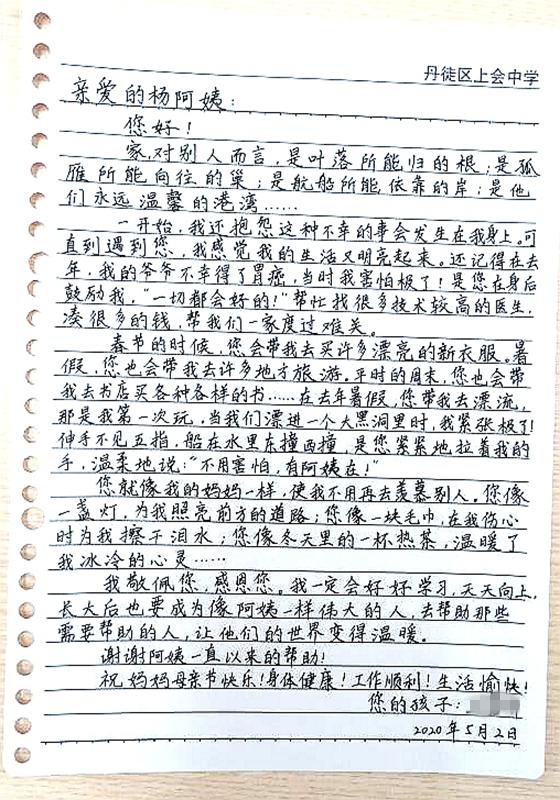 丹徒区上会中学
亲爱的杨阿姨：
您好！
家,对别人而言，是叶落所能归的根；是孤
雁所能向往的巢；是航船所能依靠的岸；是他
们永远温馨的港湾……
一开始，我还抱怨这种不幸的事会发生在我身上。可
直到遇到您，我感觉我的生活又明亮起来。还记得在去
年，我的爷爷不幸得了胃癌，当时我害怕极了！是您在身后
鼓励我，“一切都会好的！”帮忙找很多技术较高的医生，
凑很多的钱，帮我们一家度过难关。
春节的时候，您会带我去买许多漂亮的新衣服。暑
假，您也会带我去许多地方旅游。平时的周末，您也会带
我去书店买各种各样的书……在去年暑假，您带我去漂流，
那是我第一次玩，当我们漂进一个大黑洞里时，我紧张极了！
伸手不见五指，船在水里东撞西撞，是您紧紧地拉着我的
手，温柔地说：“不用害怕，有阿姨在！”
您就像我的妈妈一样，使我不用再去羡慕别人。您像
一盏灯，为我照亮前方的道路；您像一块毛巾，在我伤心
时为我擦干泪水；您像冬天里的一杯热茶，温暖了
我冰冷的心灵……
我敬佩您，感恩您。我一定会好好学习，天天向上，
长大后也要成为像阿姨一样伟大的人，去帮助那些
需要帮助的人，让他们的世界变得温暖。
谢谢阿姨一直以来的帮助！
祝妈妈母亲节快乐！身体健康！工作顺利！生活愉快！
您的孩子：
2020年5月2日